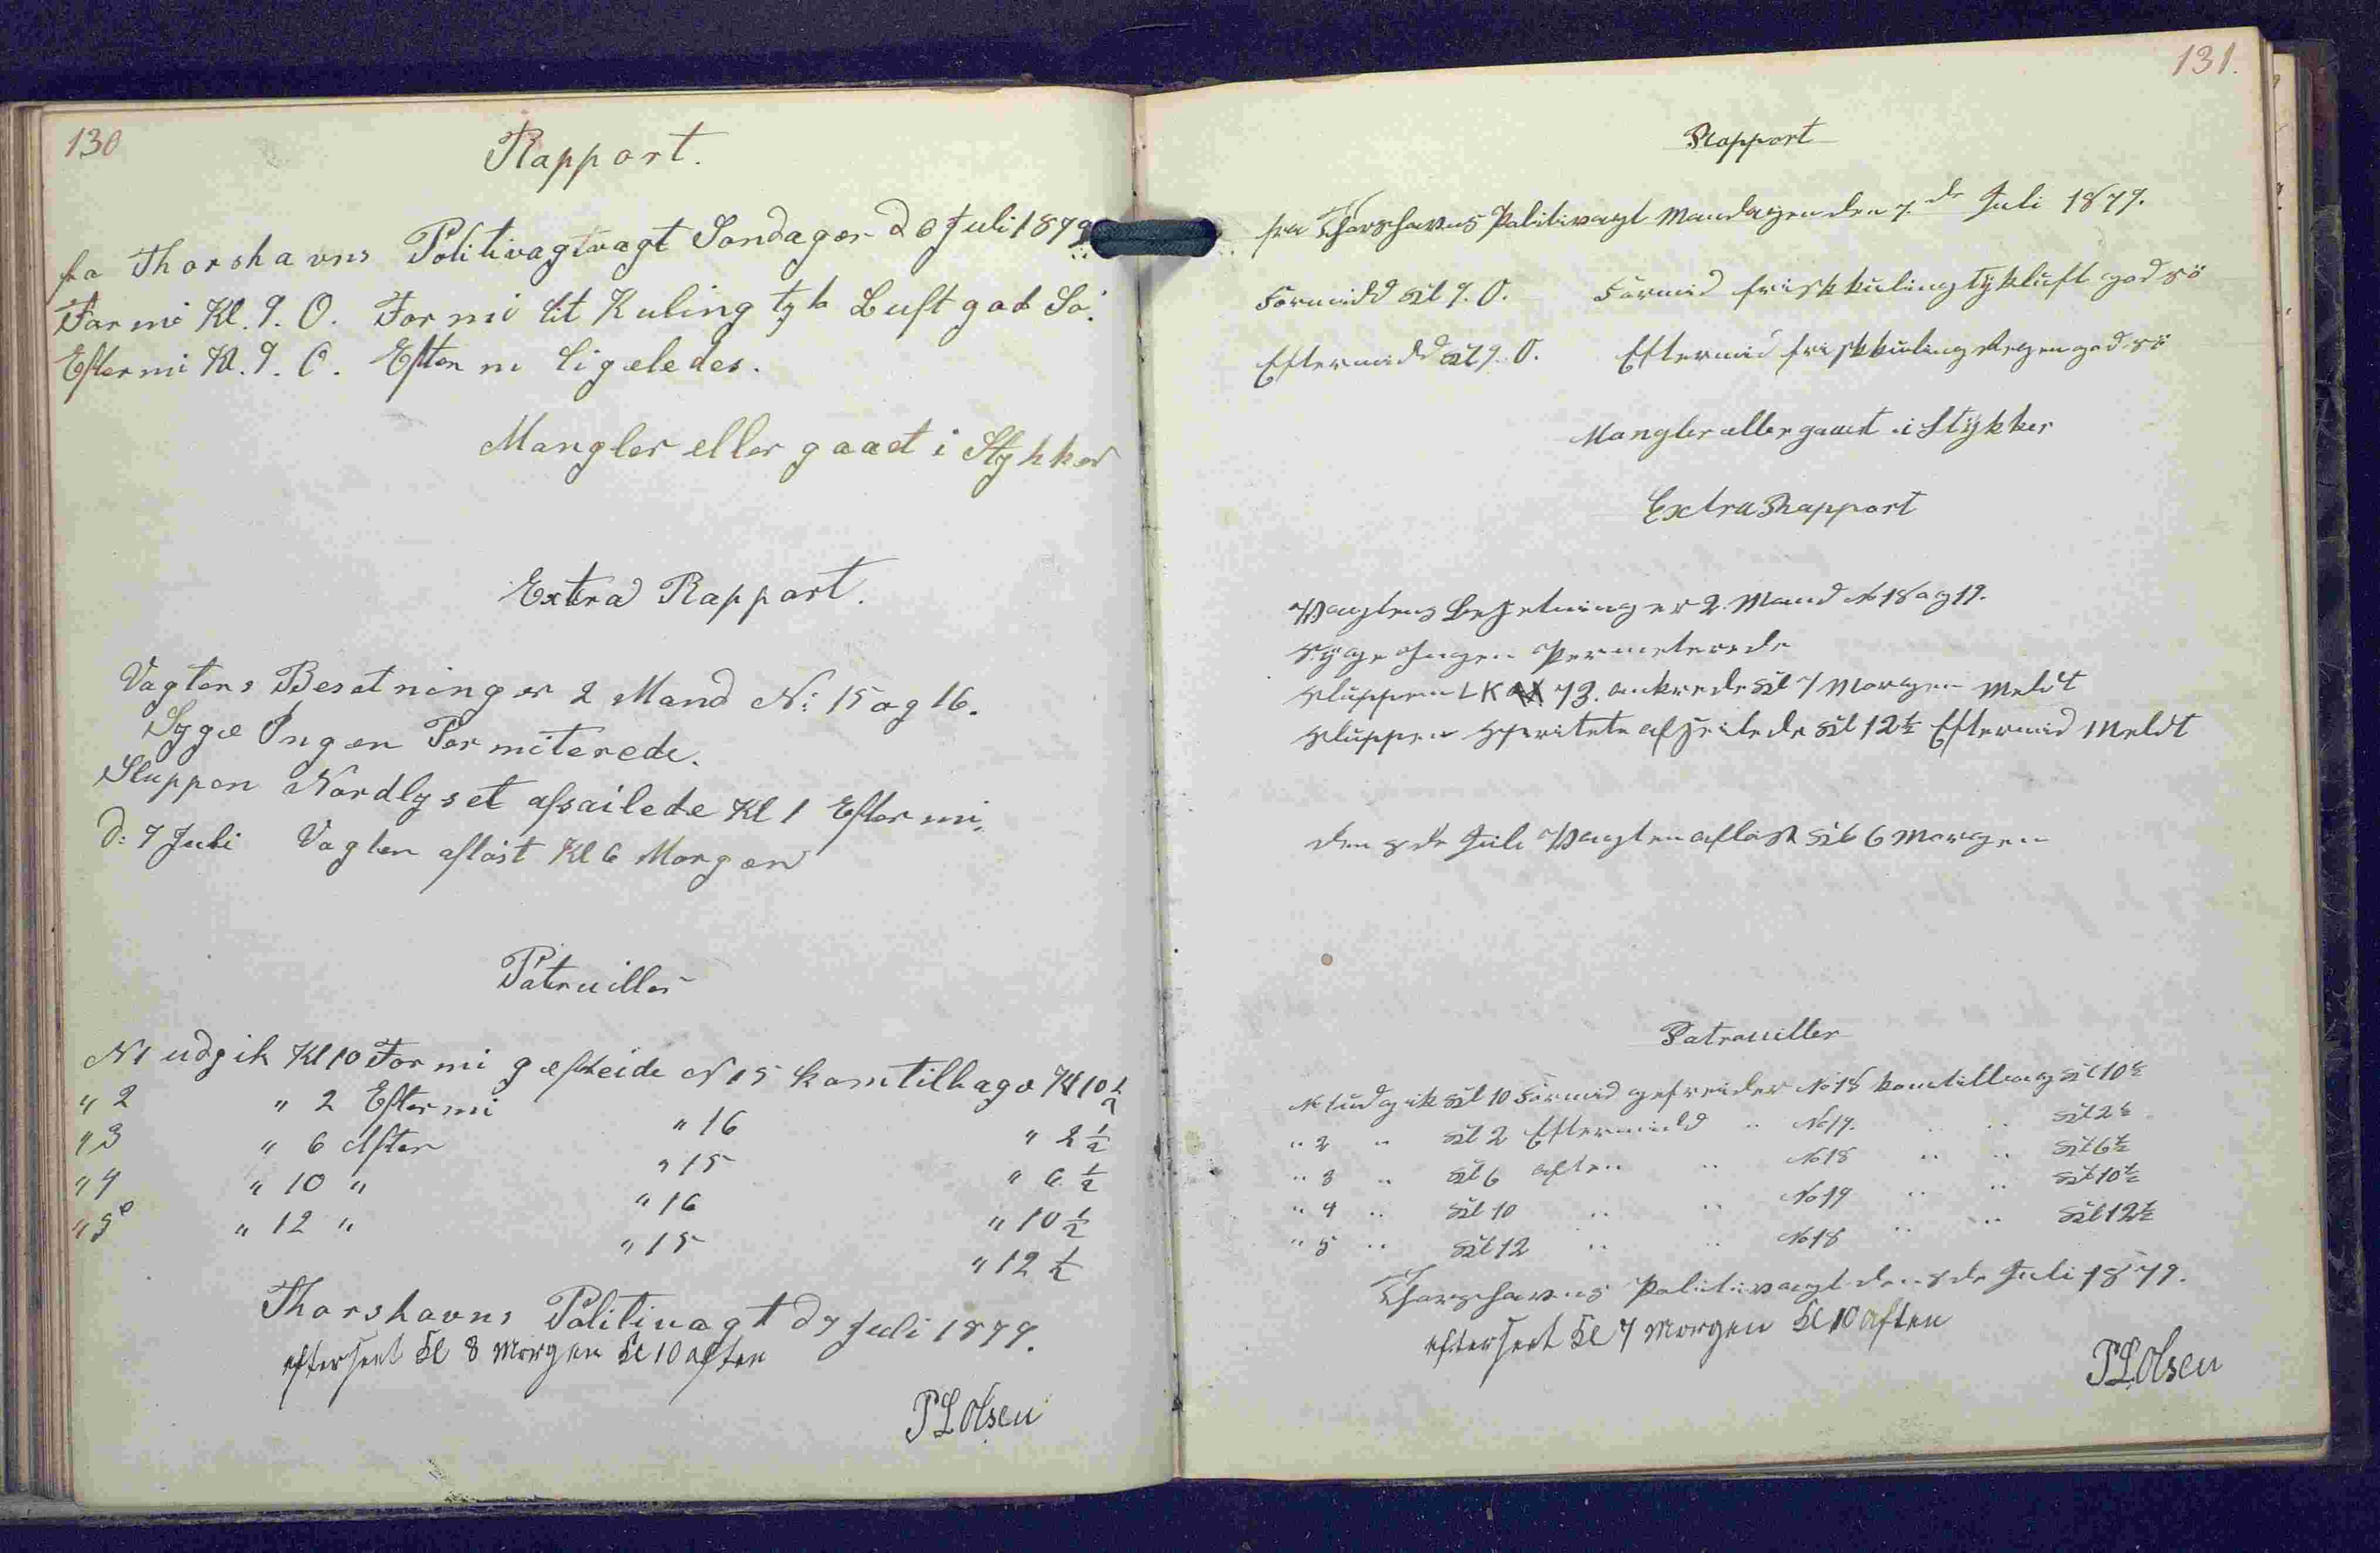 130
Rapport.
fra Thorshavns Politivagtvagt Søndagen d 6 Juli 1879
Formi Kl. 9. O. Formi lit Kuling tyk Luft god Sø.
Eftermi Kl. 9. O. Efterm ligeledes.
Mangler eller gaaet i Stykker
Extra Rapport.
Vagtens Besætning er 2 Mand N: 15 og 16.
Syge Ingen Permiterede.
Sluppen Nordlyset afsailede Kl 1 Eftermi.
d: 7 Juli Vagten afløst Kl 6 Morgen
Patruiller
N 1 udgik Kl 10 Formi gefreide N 15 kom tilbage Kl 10 ½
" 2 " 2 Eftermi " 16 " 2 ½
" 3 " 6 Aften " 15 " 6 ½
" 4 " 10 " " 16 " 10 ½
" 5 " 12 " " 15 " 12 ½
Thorshavns Politivagt d 7 Juli 1879.
efterseet Kl 8 Morgen Kl 10 aften
P L Olsen
131.
Rapport
fra Thorshavns Politivagt Mandagen den 7.de Juli 1879.
Formidd Kl 9. O. Formid frisk kuling tyk luft god sö
Eftermidd Kl 9. O. Eftermid frisk kuling Regen god sö
Mangler eller gaaet i Stykker
Extra Rapport
Vagtens Besetning er 2. Mand No 18 og 19.
Syge Ingen Permeterede
Sluppen LK 73. ankrede Kl 7 Morgen Meldt
Sluppen afseilede Kl 12½ Eftermid Meldt
den 8de Juli Vagten afløst Kl 6 Morgen
Patrouiller
No 1 udgik Kl 10 Formid gefreider No 18 kom tilbag Kl 10½
" 2 " Kl 2 Eftermidd " No 19. " " Kl 2½
" 3 " Kl 6 aften " No 18 " " Kl 6½
" 4 " Kl 10 " " No 19 " " Kl 10½
" 5 " Kl 12 " " No 18 " " Kl 12½
Thorshavns Politivagt den 8de Juli 1879.
efterseet Kl 7 Morgen Kl 10 aften
P L Olsen